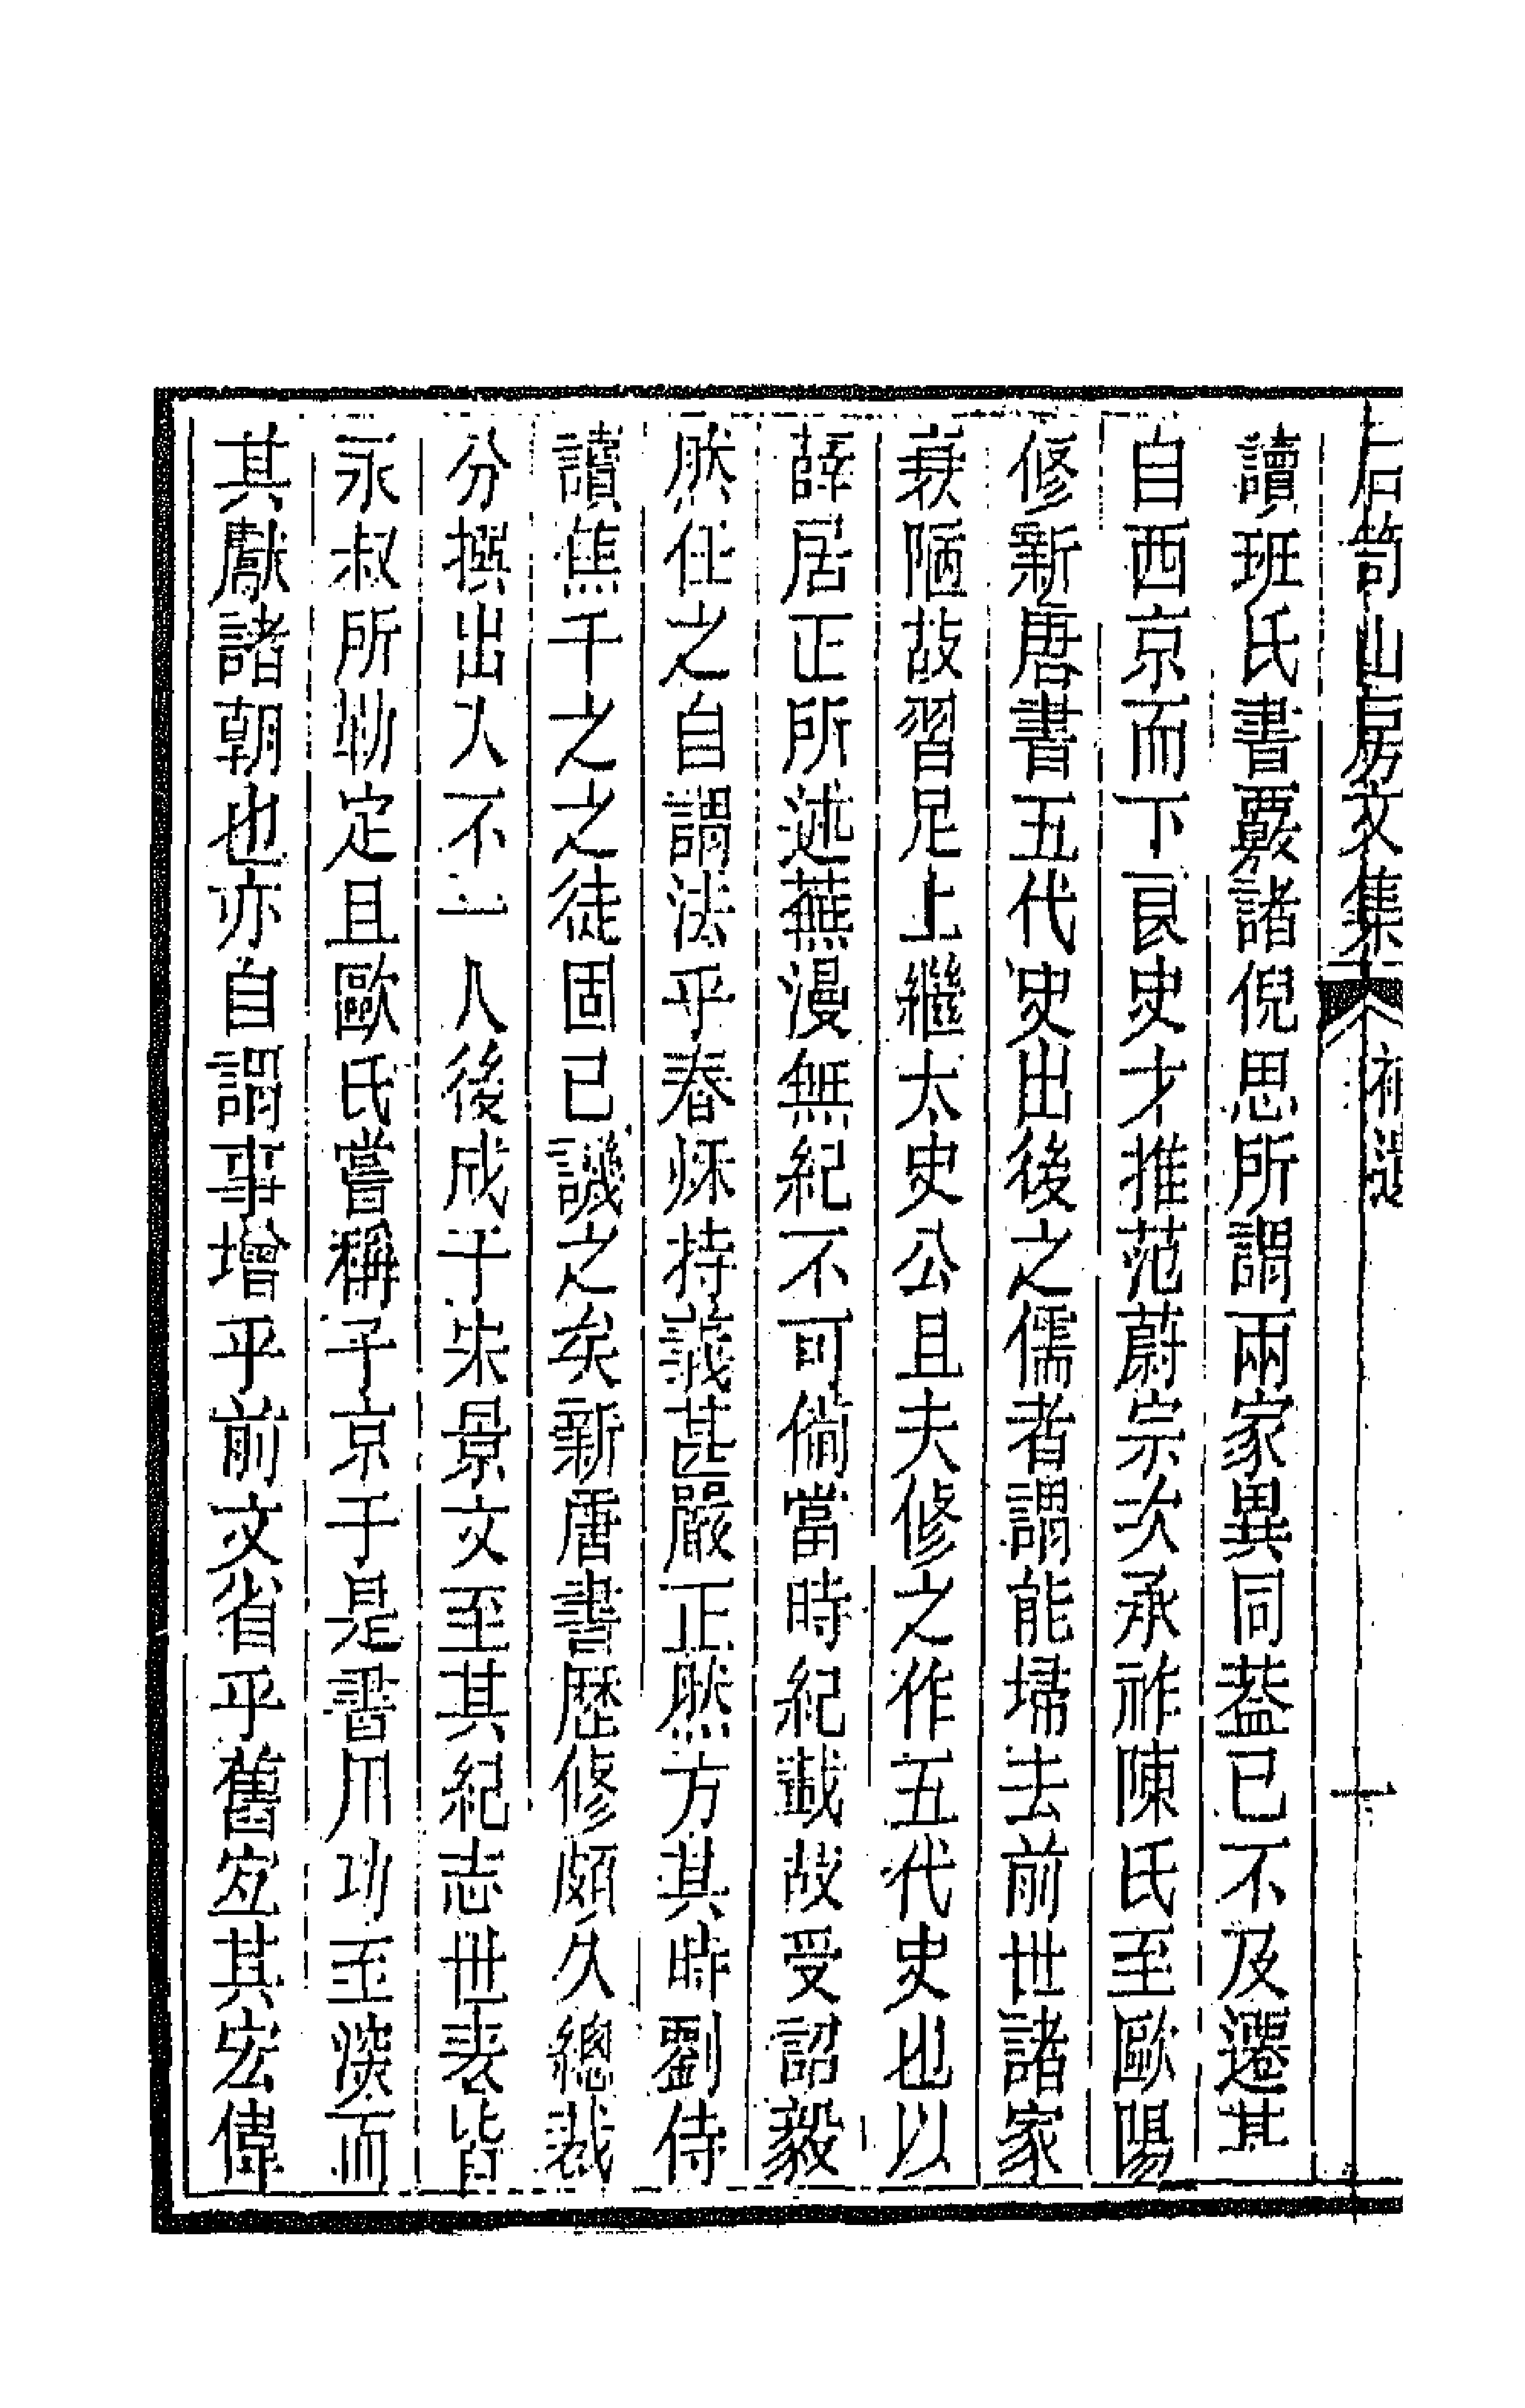 石笥山房文集 補遺 十
讀班氏書覈諸倪思所謂兩家異同葢已不及遷其
自西京而下良史才推范蔚宗次承祚陳氏至歐陽
修新唐書五代史出後之儒者謂能埽去前世諸家
衰陋故習足上繼太史公且夫修之作五代史也以
薛居正所述蕪漫無紀不可備當時紀載故受詔毅
然任之自謂法乎春秋持義甚嚴正然方其時劉侍
讀焦千之之徒固已譏之矣新唐書歷修頗久總裁
分撰出入不一人後成于宋景文至其紀志世表皆
永叔所勒定且歐氏嘗稱子京于是書用功至深而
其獻諸朝也亦自謂事增乎前文省乎舊宐其宏偉